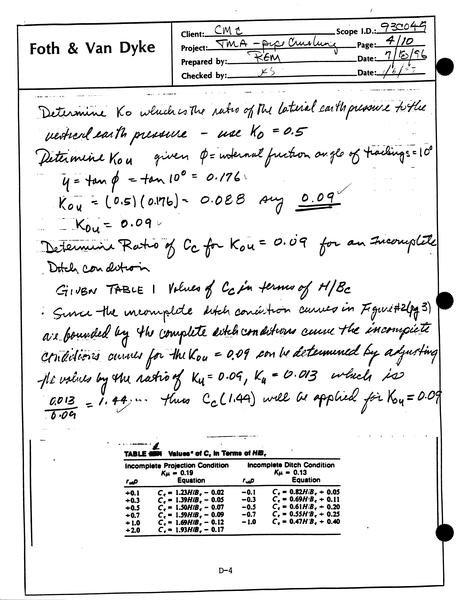 Foth & Van Dyke
Client: CMC Scope I.D.: 93C049
Project: TMA - pipe Crushing Page: 4/10
Prepared by: REM Date: 7/10/96
Checked by: KS Date:
Determine Ko which is the ratio of the lateral earth pressure to the
vertical earth pressure - use Ko = 0.5
Determine Kou given φ = internal friction angle of tailings = 10°
μ = tan φ = tan 10° = 0.176
Kou = (0.5)(0.176) = 0.088 say 0.09 ✓
Kou = 0.09
Determine Ratio of Cc for Kou = 0.09 for an Incomplete
Ditch condition
GIVEN TABLE 1 Values of Cc in terms of H/Bc
Since the incomplete ditch condition curves in Figure #2 (pg 3)
are bounded by the complete ditch conditions curve the incomplete
conditions curves for the Kou = 0.09 can be determined by adjusting
the values by the ratio of Ku = 0.09, Ku = 0.013 which is
0.013/0.09 = 1.44... thus Cc(1.44) will be applied for Kou = 0.09
TABLE Values* of Cc in Terms of H/Bc
Incomplete Projection Condition Incomplete Ditch Condition
Kμ = 0.19 Kμ = 0.13
rsdp Equation rsdp Equation
+0.1 Cc = 1.23H/Bc - 0.02 -0.1 Cc = 0.82H/Bc + 0.05
+0.3 Cc = 1.39H/Bc - 0.05 -0.3 Cc = 0.69H/Bc + 0.11
+0.5 Cc = 1.50H/Bc - 0.07 -0.5 Cc = 0.61H/Bc + 0.20
+0.7 Cc = 1.59H/Bc - 0.09 -0.7 Cc = 0.55H/Bc + 0.25
+1.0 Cc = 1.69H/Bc - 0.12 -1.0 Cc = 0.47H/Bc + 0.40
+2.0 Cc = 1.93H/Bc - 0.17
D-4